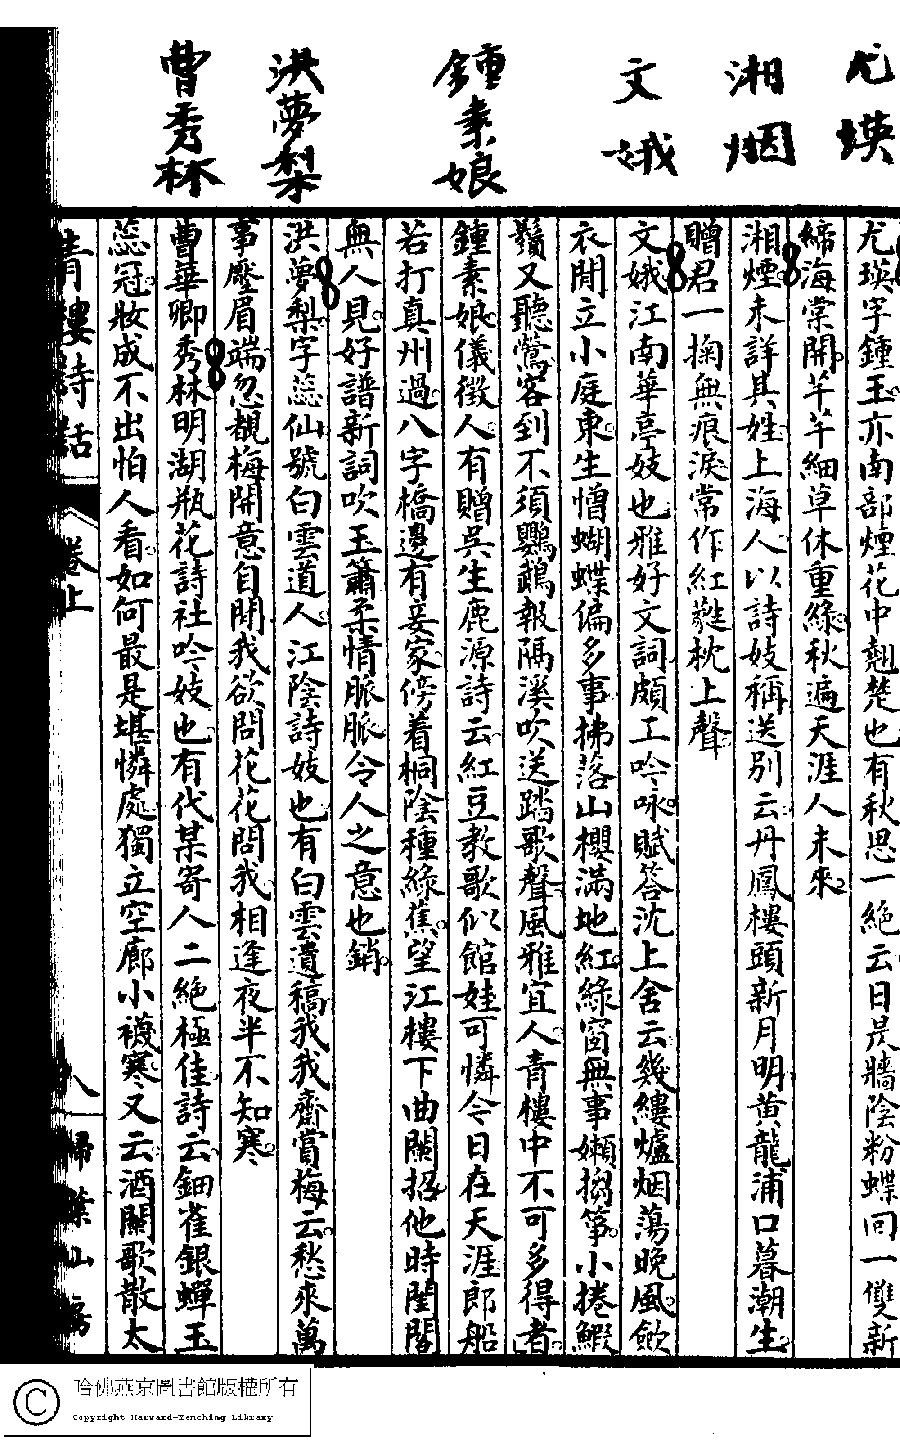 尤瑛
湘烟
文娥
鍾素娘
洪夢梨
曹秀林
尤瑛字鍾玉亦南部煙花中翹楚也有秋思一絕云日昃牆陰粉蝶回一雙新
締海棠開芊芊細草休重綠秋遍天涯人未來
湘煙未詳其姓上海人以詩妓稱送別云丹鳳樓頭新月明黃龍浦口暮潮生
贈君一掬無痕淚常作紅蕤枕上聲
文娥江南華亭妓也雅好文詞頗工吟咏賦答沈上舍云幾縷爐烟蕩晚風歛
衣閒立小庭東生憎蝴蝶偏多事拂落山櫻滿地紅綠窗無事嬾搊箏小捲鰕
鬚又聽鶯客到不須鸚鵡報隔溪吹送踏歌聲風雅宜人青樓中不可多得者
鍾素娘儀徵人有贈吳生鹿源詩云紅豆教歌似館娃可憐今日在天涯郎船
若打真州過八字橋邊有妾家傍着桐陰種綠蕉望江樓下曲闌招他時閨閣
無人見好譜新詞吹玉簫柔情脈脈令人之意也銷
洪夢梨字蕊仙號白雲道人江陰詩妓也有白雲遺稿我我齋賞梅云愁來萬
事壓眉端忽覩梅開意自閒我欲問花花問我相逢夜半不知寒
曹華卿秀林明湖瓶花詩社吟妓也有代某寄人二絕極佳詩云鈿雀銀蟬玉
蕊冠妝成不出怕人看如何最是堪憐處獨立空廊小襪寒又云酒闌歌散太
青樓詩話
卷上
八
掃葉山房
哈佛燕京圖書館版權所有
Copyright Harvard-Yenching Library